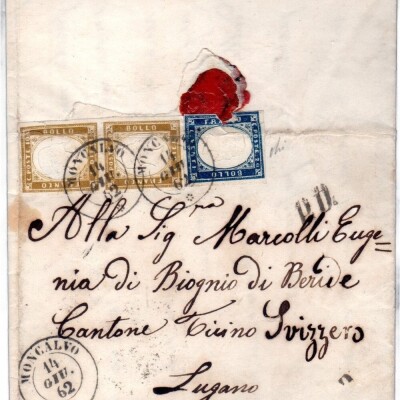 BOLLO
BOLLO
FRANCO
POSTALE
BOLLO
MONCALVO
14
GIU.
62
MONCALVO
14
GIU.
62
P.D.
Alla Sig.ra Marcolli Euge=
nia di Biognio di Beride
Cantone Ticino Svizzero
Lugano
MONCALVO
14
GIU.
62